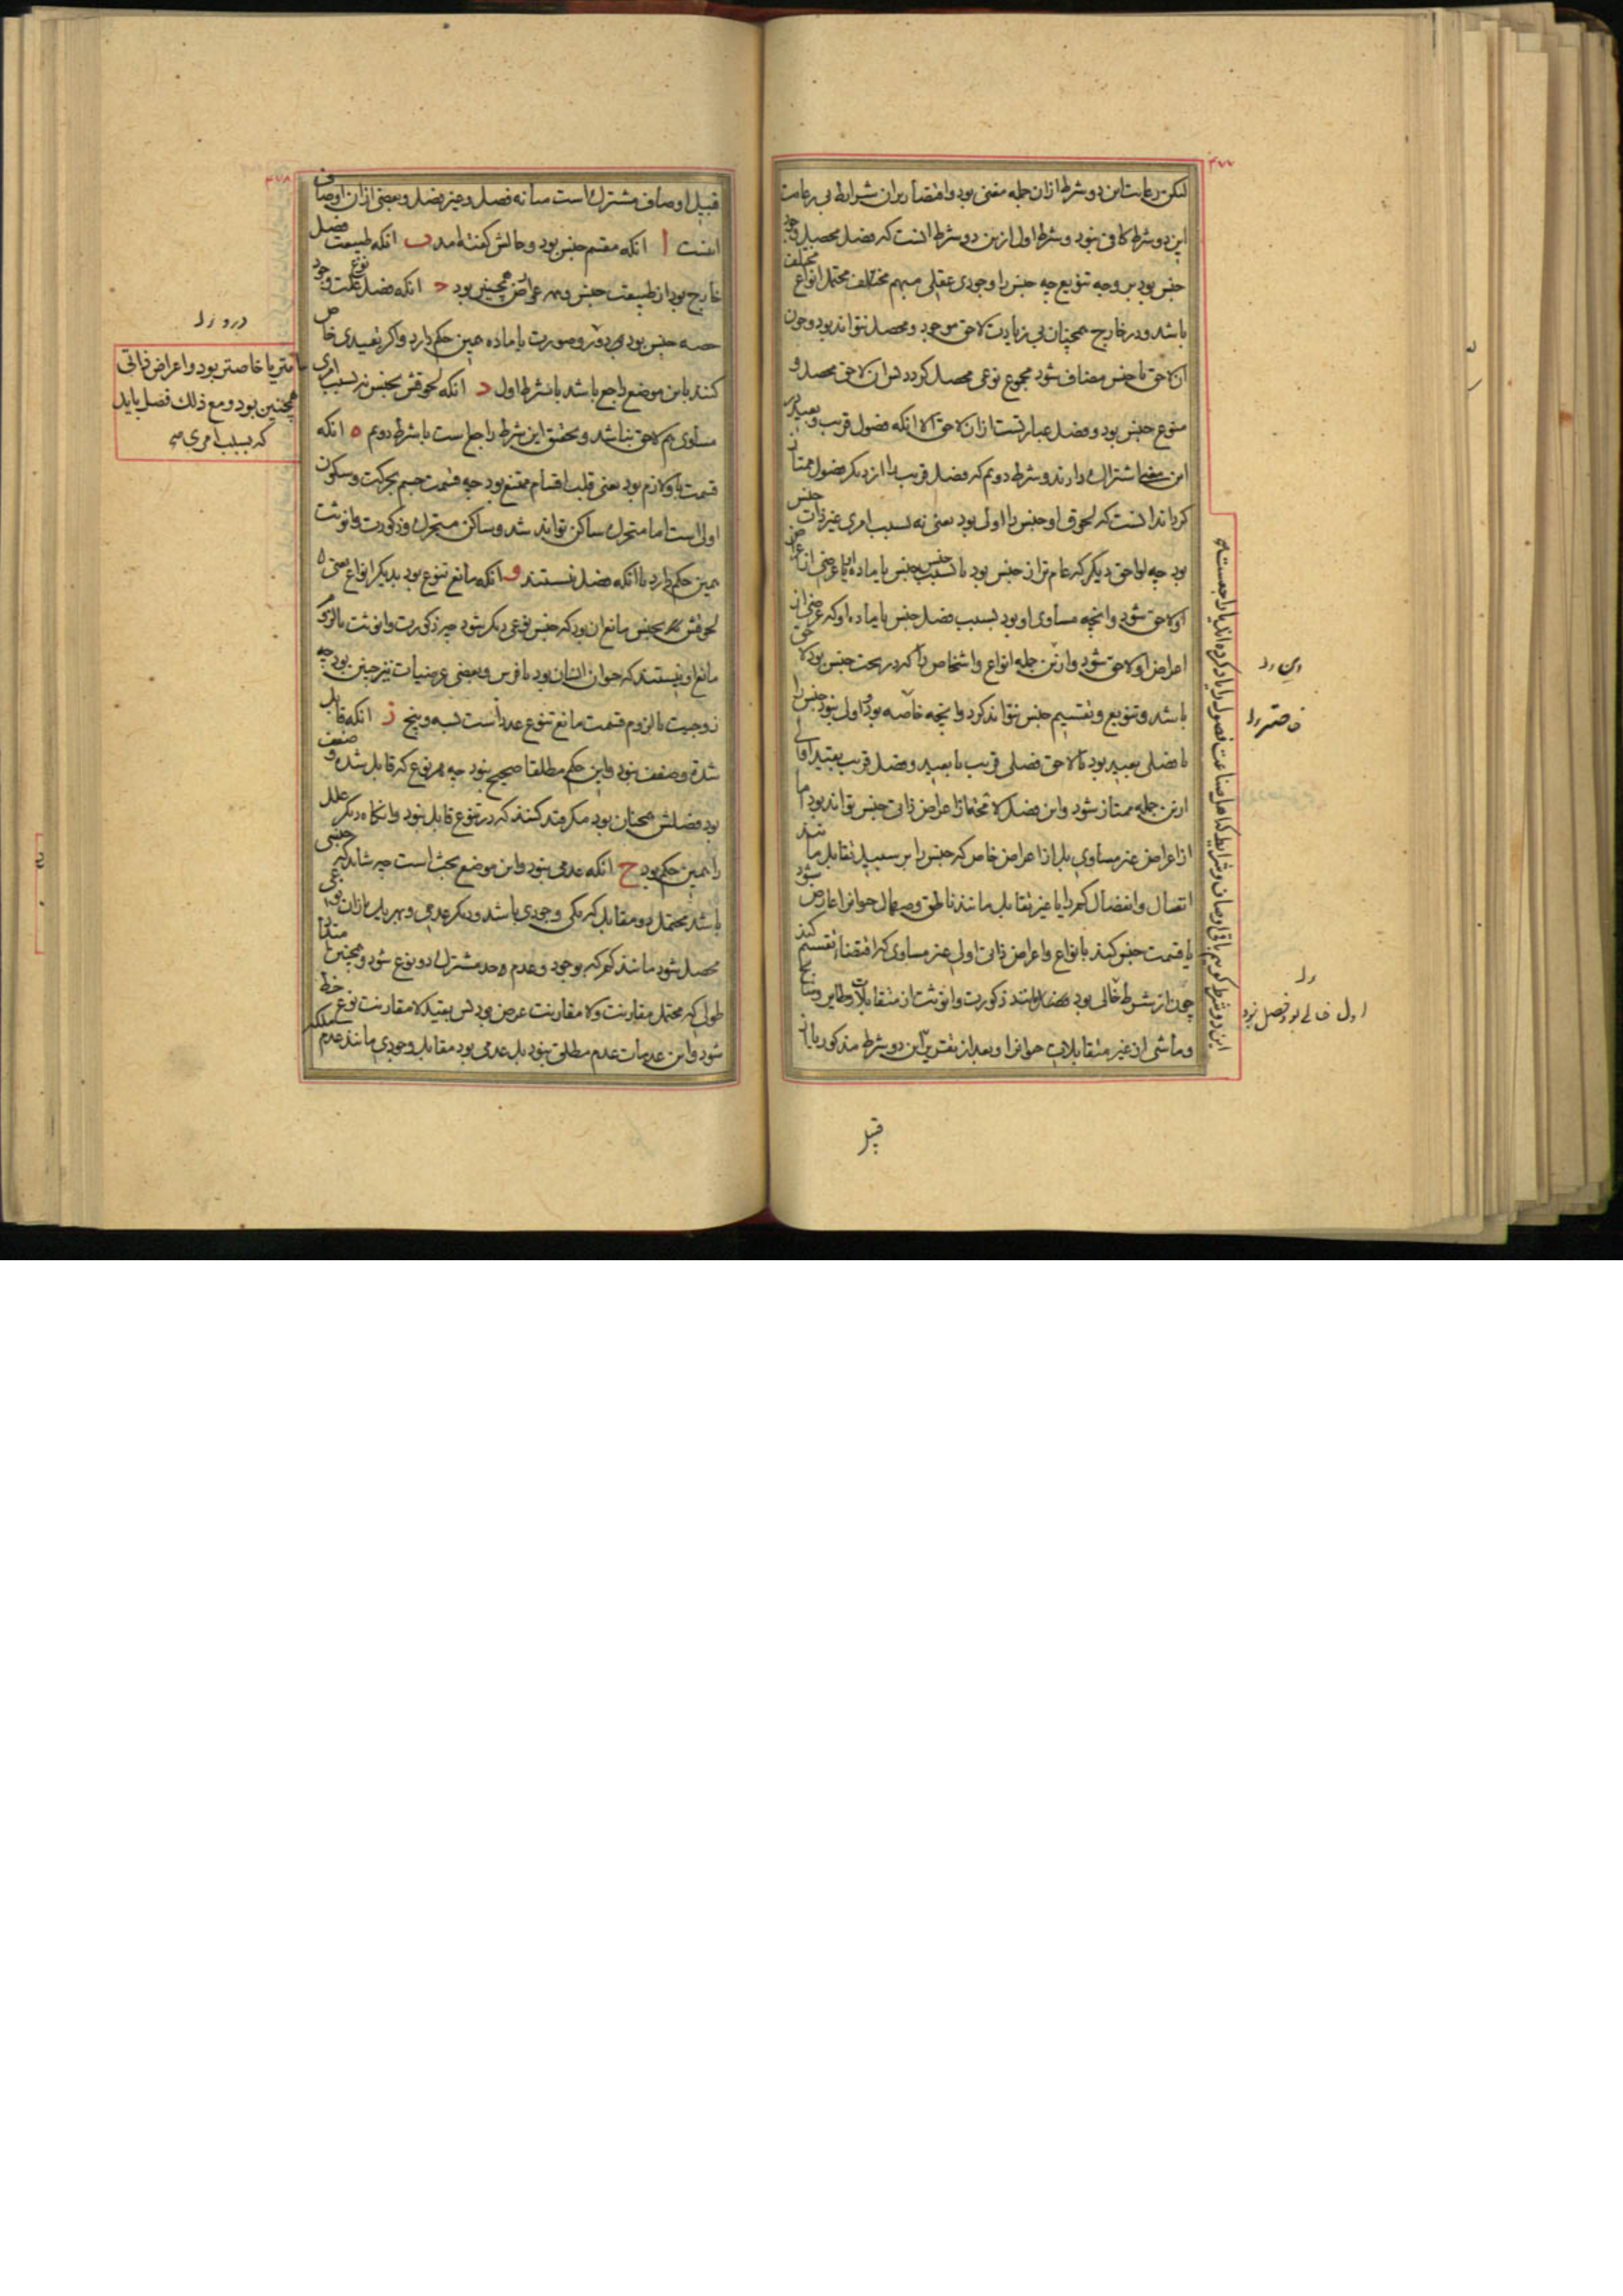 ۴۷۷
لیکن رعایت این دو شرط ازان جمله مغنی بود و اقتصار بران شرایط بی رعایت
این دو شرط کافی نبود و شرط اول ازین دو شرط انست که فصل محصل وجود
جنس بود بر وجه تنویع چه جنس را وجودی عقلی مبهم مختلف محتمل انواع مختلف
باشد و در خارج همچنان بی زیادت لاحق موجود و محصل نتواند بود و چون
ان لاحق با جنس مضاف شود مجموع نوعی محصل کردد پس ان لاحق محصل و
منوع جنس بود و فصل عبارتست ازان لاحق الا انکه فصول قریب و بعید در
این معنی اشتراک دارند و شرط دویم که فصل قریب را از دیکر فصول ممتاز
کرداند انست که لحوق او جنس را اولی بود یعنی نه بسبب امری غیر ذات جنس
بود چه لواحق دیکر که عام تر از جنس بود یا بسبب جنس جنس یا ماده او یا عرضی از اعراض
او لاحق شود و انچه مساوی او بود بسبب فصل جنس یا ماده او که عرضی از
اعراض او لاحق شود و ازین جمله انواع و اشخاص را که در تحت جنس بود لاحق
باشد و تنویع و تقسیم جنس نتواند کرد و انچه خاصه بود و اول نبود جنس را
یا فصلی بعید بود که لاحق فصلی قریب یا بعید و فصل قریب بقید اولی
ازین جمله ممتاز شود و این فصل لا محاله از اعراض ذاتی جنس تواند بود اما
از اعراض غیر مساوی بل از اعراض خاص که جنس را بر سبیل تقابل مانند
اتصال و انفصال کم را یا غیر تقابل مانند ناطق و صهال حیوانرا عارض شود
یا قسمت جنس کنند بانواع و اعراض ذاتی اولی غیر مساوی که اقتضاء تقسیم کند
چون از شرط خالی بود فصل نباشد ذکورت و انوثت از متقابلات و طایر و سابح
و ماشی از غیر متقابلات حیوانرا و بعد از تقریر این دو شرط مذکور با
این دو شرط کوییم باقی اوصاف و شرایط که اهل صناعت فصول را یاد کرده اند یا راجعست به
خاصتر را
اول خالی بود فصل نبود
قبیل
۴۷۸
قبیل اوصاف مشترک است میانه فصل و غیر فصل و بعضی ازان اوصاف
اینست ا انکه مقسم جنس بود و حالش کفته امد ب انکه طبیعت فصل
خارج بود از طبیعت جنس و همه عوارض همچنین بود ج انکه فصل علت وجود نوع
حصه جنس بود و دور و صورت با ماده همین حکم دارد و اکر تقییدی خاص
کنند باین موضع راجع باشد با شرط اول د انکه لحوقش بجنس نه بسبب امری
مساوی هم لاحق نباشد و تحقیق این شرط راجع است با شرط دویم ه انکه
قسمت باو لازم بود یعنی قلب اقسام ممتنع بود چه قسمت جسم بحرکت و سکون
اولی است اما متحرک ساکن تواند شد و ساکن متحرک و ذکورت و انوثت
همین حکم دارد با انکه فصل نیستند و انکه مانع تنوع بود بدیکر انواع یعنی
لحوقش بجنس مانع ان بود که جنس نوعی دیکر شود چه ذکورت و انوثت با لزوم
مانع او نیستند که حیوان انسان بود یا فرس و بعضی عرضیات نیز چنین بود چه
زوجیت با لزوم قسمت مانع تنوع عدد است بسه و پنج ز انکه قابل
شدة و ضعف نبود و این حکم مطلقا صحیح نبود چه هر نوع که قابل شده و ضعف
بود فصلش همچنان بود مکر مقید کنند که در تنوع قابل نبود و انکاه دیکر علل
را همین حکم بود ح انکه عدمی نبود و این موضع بحث است چه شاید که جنسی
باشد محتمل دو مقابل که یکی وجودی باشد و دیکر عدمی و بهر یک ازان نوعی
محصل شود مانند کم که بوجود و عدم حد مشترک دو نوع شود و همچنین مثلا
طولی که محتمل مقارنت و لا مقارنت عرض بود پس بقید لا مقارنت نوع خط
شود و این عدمیات عدم مطلق نبود بل عدمی بود مقابل وجودی مانند عدم ملکه
عامتر یا خاصتر بود و اعراض ذاتی
همچنین بود و مع ذلک فصل باید
که بسبب امری